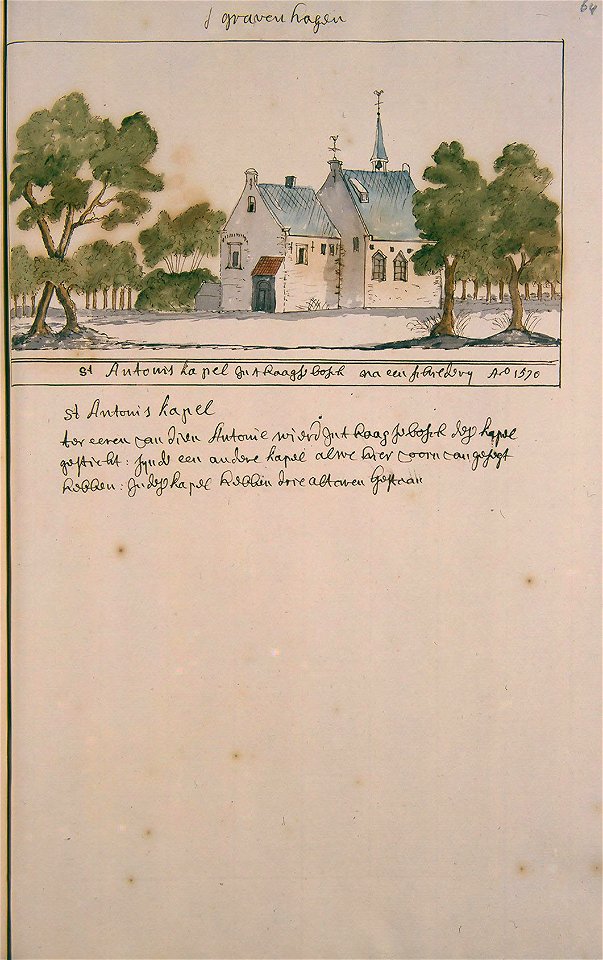 64
s gravenhagen
St Antonis kapel Int haagse bosch na een schildery Ao 1570
St Antonis kapel
ter eeren van dien Antonie wierd Int haagse bosch dese kapel
gesticht: synde een andere kapel alwe hier voorn van gesegt
hebben: In dese kapel hebben drie altaren gestaan